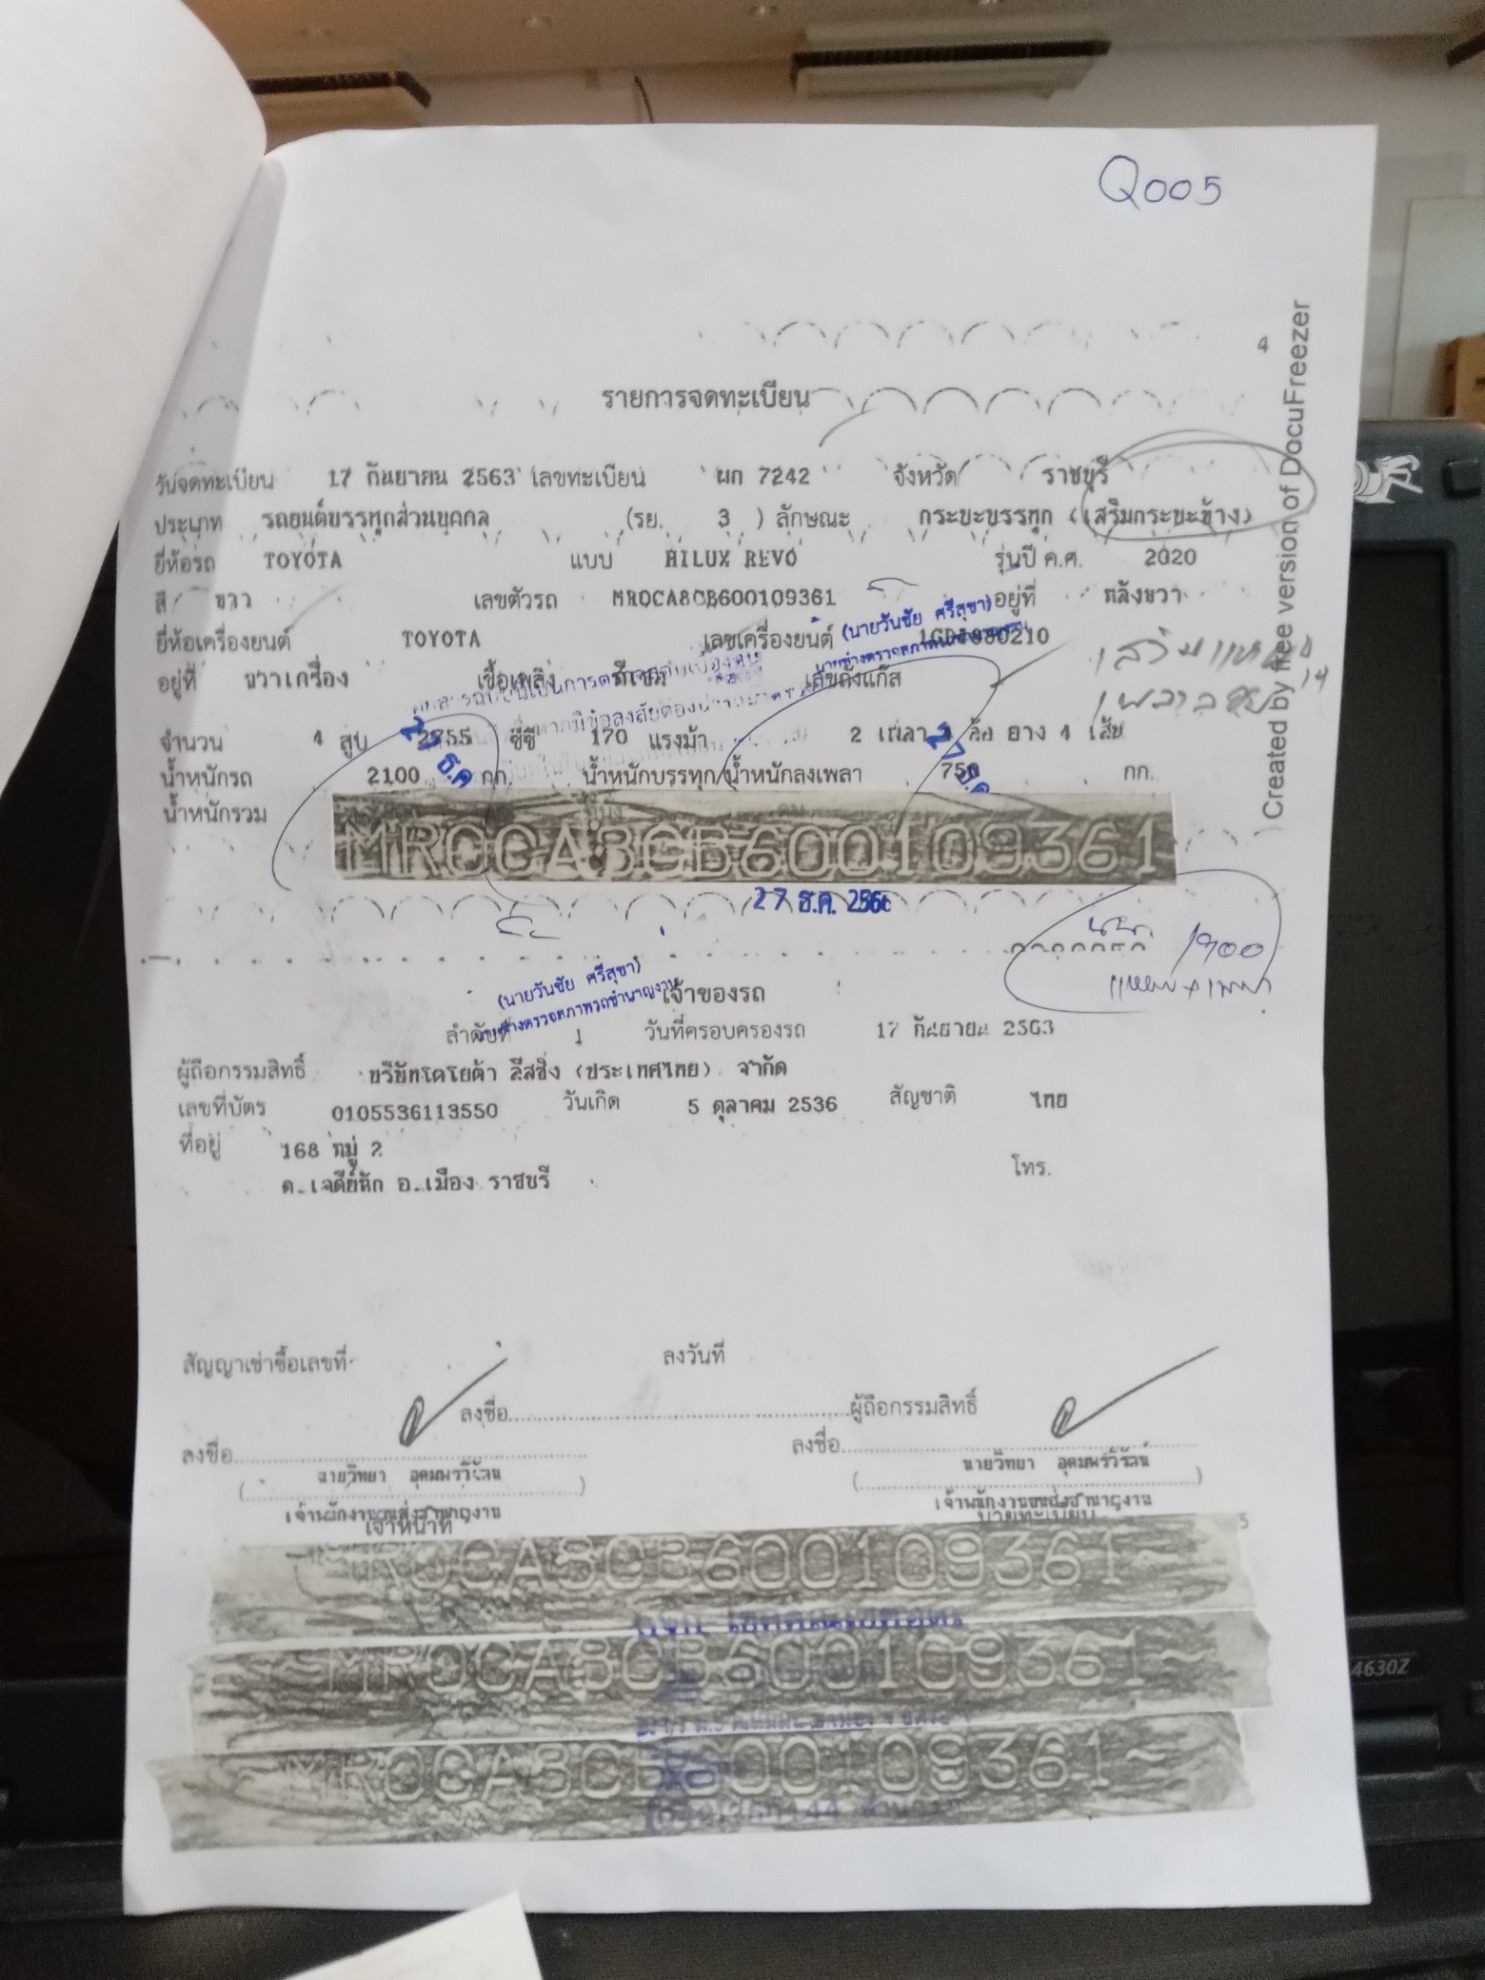 Q005
4
รายการจดทะเบียน
วันจดทะเบียน 17 กันยายน 2563 เลขทะเบียน ผก 7242 จังหวัด ราชบุรี
ประเภท รถยนต์บรรทุกส่วนบุคคล (รย. 3 ) ลักษณะ กระบะบรรทุก (เสริมกระบะข้าง)
ยี่ห้อรถ TOYOTA แบบ HILUX REVO รุ่นปี ค.ศ. 2020
สี ขาว เลขตัวรถ MR0CA8CB600109361 อยู่ที่ หลังขวา
(นายวันชัย ศรีสุขา)
ยี่ห้อเครื่องยนต์ TOYOTA เลขเครื่องยนต์
อยู่ที่ ขวาเครื่อง เชื้อเพลิง ดีเซล เลขถังแก๊ส
จำนวน 4 สูบ 2755 ซีซี 170 แรงม้า 2 เพลา 4 ล้อ ยาง 4 เส้น
น้ำหนักรถ 2100 กก. น้ำหนักบรรทุก/น้ำหนักลงเพลา 750 กก.
น้ำหนักรวม
MR0CA8CB600109361
27 ธ.ค.
1900
(นายวันชัย ศรีสุขา)
นายช่างตรวจสภาพรถชำนาญงาน
เจ้าของรถ
ลำดับที่ 1 วันที่ครอบครองรถ 17 กันยายน 2563
ผู้ถือกรรมสิทธิ์ บริษัทโตโยต้า ลีสซิ่ง (ประเทศไทย) จำกัด
เลขที่บัตร 0105536113550 วันเกิด 5 ตุลาคม 2536 สัญชาติ ไทย
ที่อยู่ 168 หมู่ 2
ต.เจดีย์หัก อ.เมือง ราชบุรี
โทร.
สัญญาเช่าซื้อเลขที่ ลงวันที่
ลงชื่อ ผู้ถือกรรมสิทธิ์
ลงชื่อ ลงชื่อ
นายวิทยา อุดมพรวิรัตน์ นายวิทยา อุดมพรวิรัตน์
เจ้าพนักงานขนส่งชำนาญงาน เจ้าพนักงานขนส่งชำนาญงาน
เจ้าหน้าที่ นายทะเบียน
5
MR0CA8CB600109361~
~MR0CA8CB600109361~
~MR0CA8CB600109361~
Created by free version of DocuFreezer
4630Z